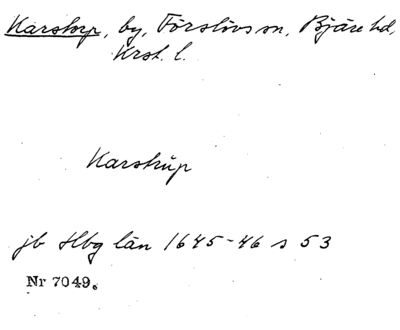 Karstorp, by, Förslövs sn, Bjäre hd,
Krst. l.
Karstrüp
jb Hbg län 1645-46 s 53
Nr 7049.